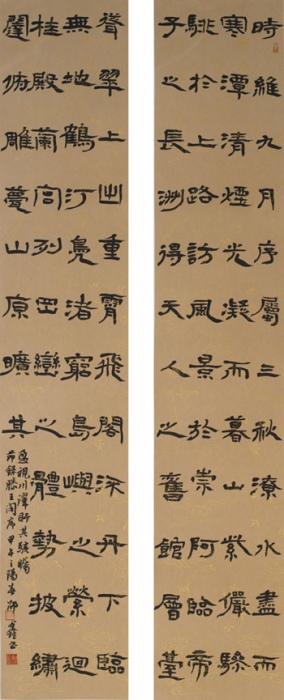 時維九月序屬三秋潦水盡而
寒潭清煙光凝而暮山紫儼驂
騑於上路訪風景於崇阿臨帝
子之長洲得天人之舊館層臺
聳翠上出重霄飛閣流丹下臨
無地鶴汀鳧渚窮島嶼之縈迴
桂殿蘭宮列岡巒之體勢披繡
闥俯雕甍山原曠其
盈視川澤盱其駭矚
節錄滕王閣序甲午之陽春